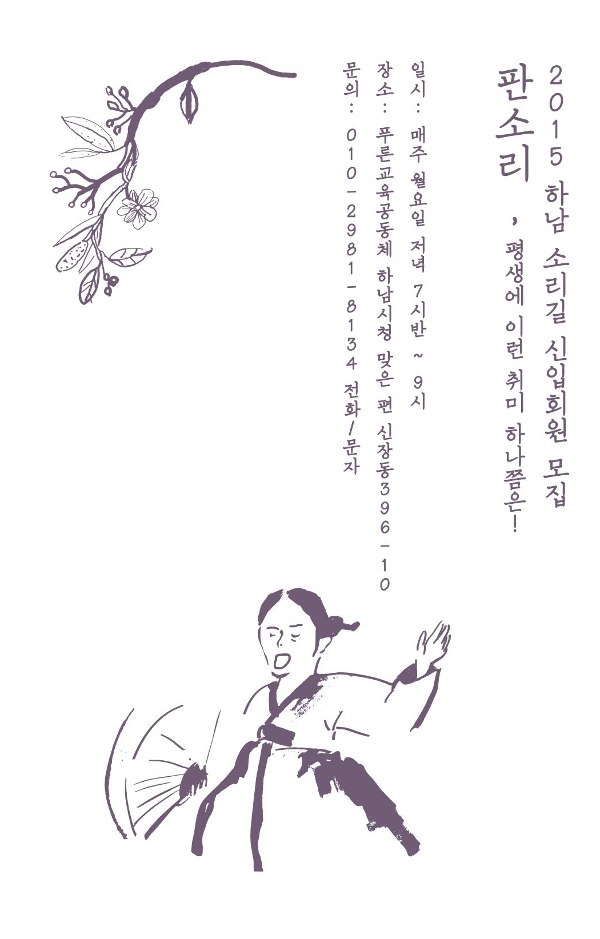 2015 하남 소리길 신입회원 모집
판소리, 평생에 이런 취미 하나쯤은!
일시: 매주 월요일 저녁 7시반 ~ 9시
장소: 푸른교육공동체 하남시청 맞은 편 신장동396-10
문의: 010-2981-8134 전화/문자